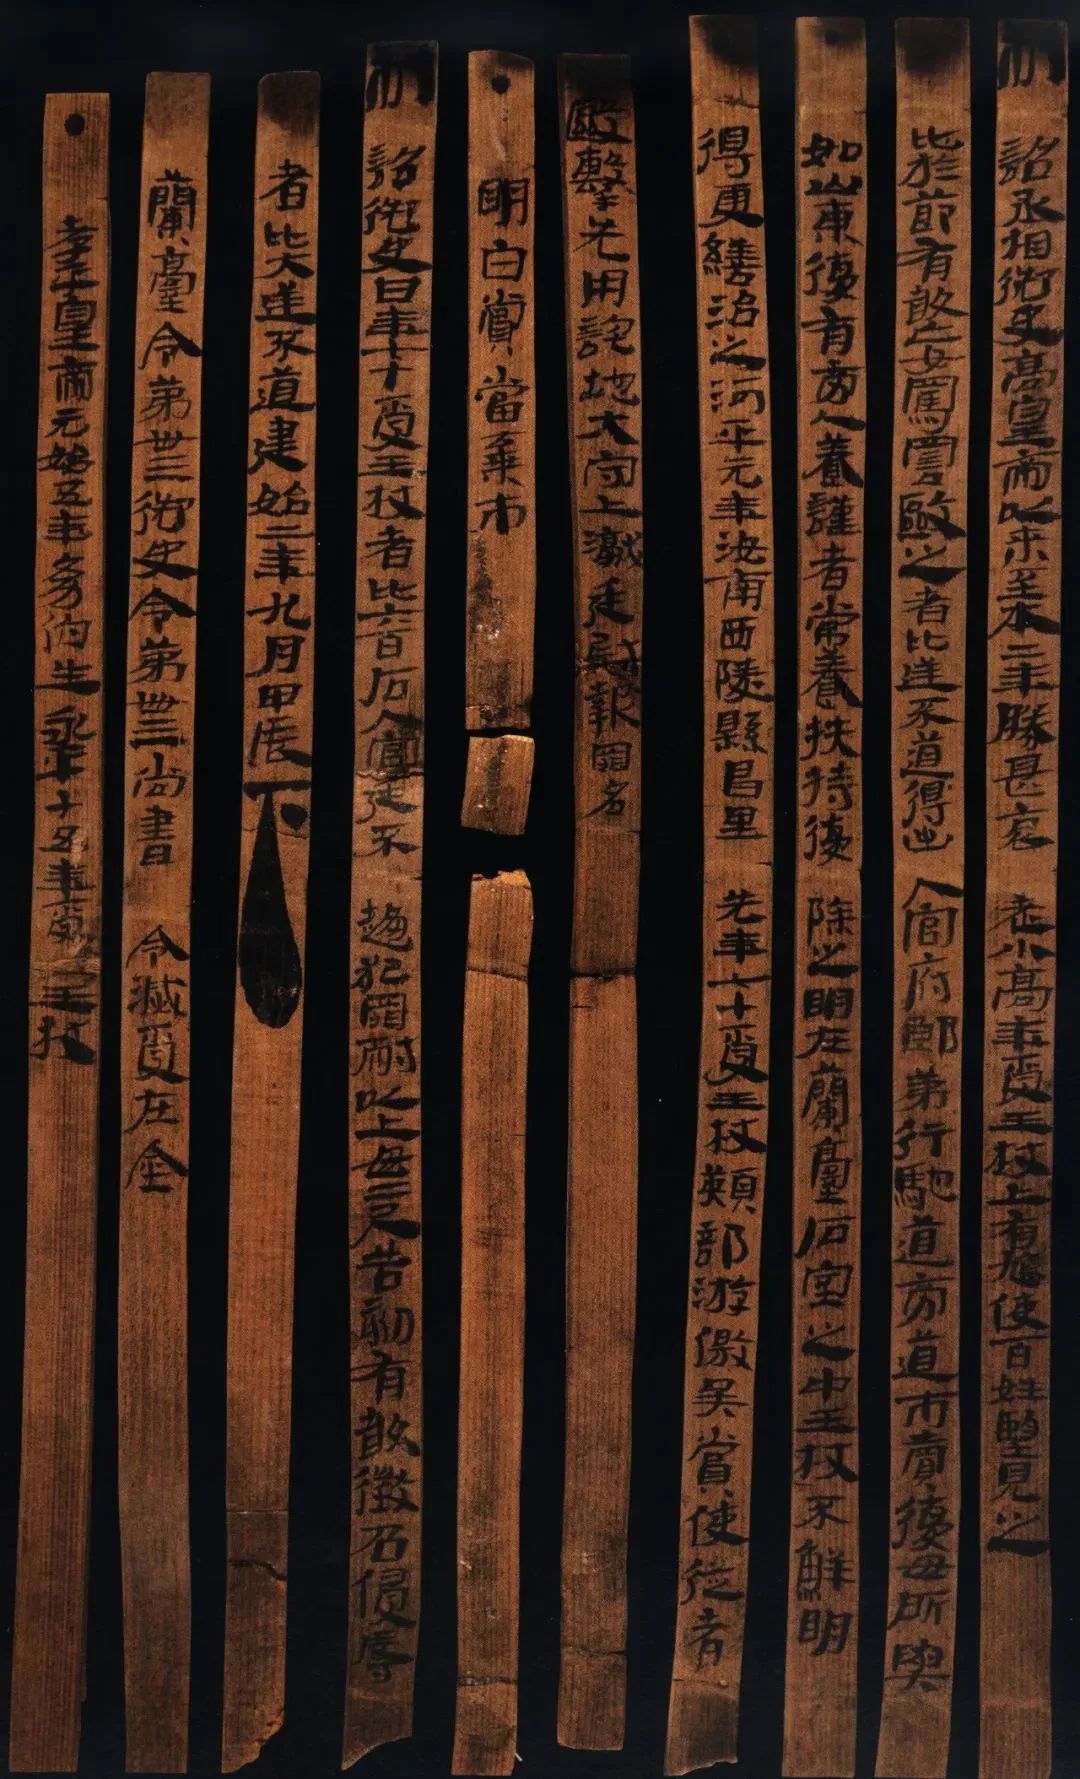 制 詔丞相御史高皇帝以來至本二年勝甚哀 老小高年受王杖上有鳩使百姓望見之
比於節有敢妄罵詈毆之者比逆不道得出 入官府郎第行馳道旁道市賣復毋所與
如山東復有旁人養謹者常養扶持復 除之明在蘭臺石室之中王杖不鮮明
得更繕治之河平元年汝南西陵縣昌里 先年七十受王杖潁部游徼吳賞使從者
毆擊先用詫地大守上讞廷尉報罪名
明白賞當棄市
制 詔御史曰年七十受王杖者比六百石入官廷不 趨犯罪耐以上毋二尺告劾有敢徵召侵辱
者比大逆不道建始二年九月甲辰下
蘭臺令第卅三御史令第卌三尚書 令滅受在金
孝平皇帝元始五年幼伯生永平十五年受王杖